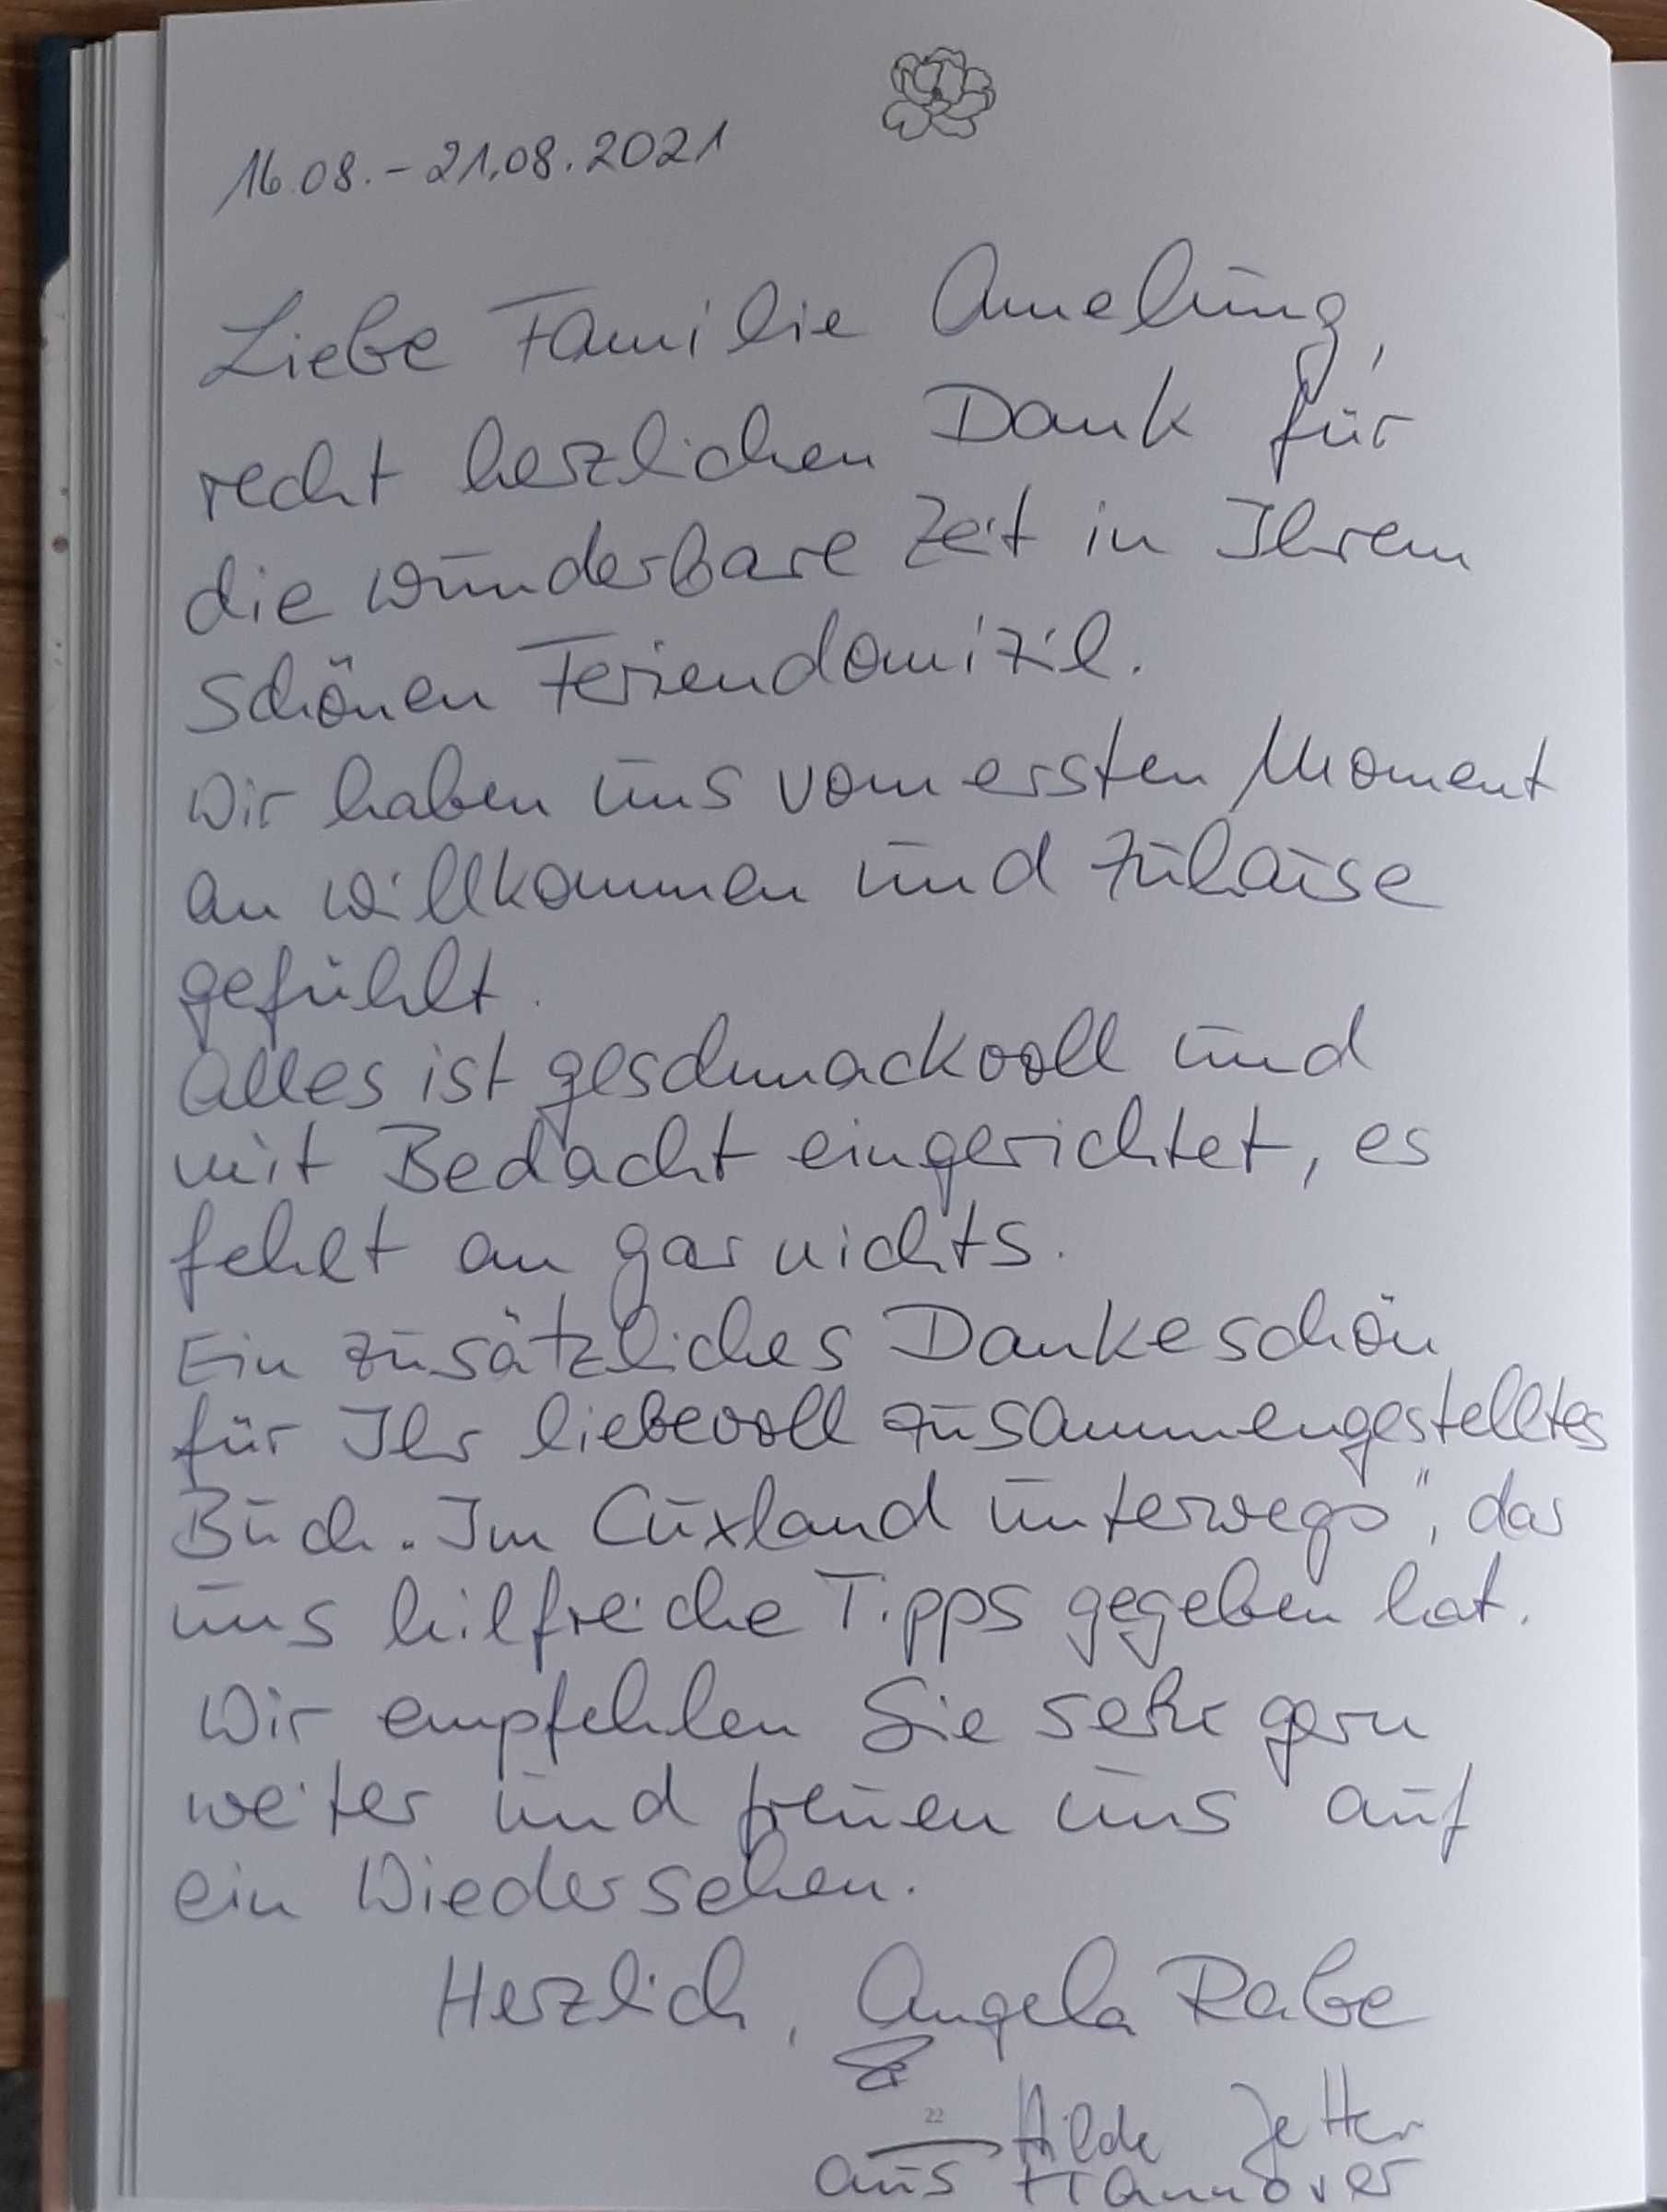 16.08.-21.08.2021
Liebe Familie Amelung,
recht herzlichen Dank für
die wunderbare Zeit in Ihrem
schönen Feriendomizil.
Wir haben uns vom ersten Moment
an willkommen und zuhause
gefühlt.
Alles ist geschmackvoll und
mit Bedacht eingerichtet, es
fehlt an gar nichts.
Ein zusätzliches Dankeschön
für Ihr liebevoll zusammengestelltes
Buch „Im Cuxland unterwegs", das
uns hilfreiche Tipps gegeben hat.
Wir empfehlen Sie sehr gern
weiter und freuen uns auf
ein Wiedersehen.
Herzlich, Angela Rabe
&
22
Hilde Jetter
aus Hannover